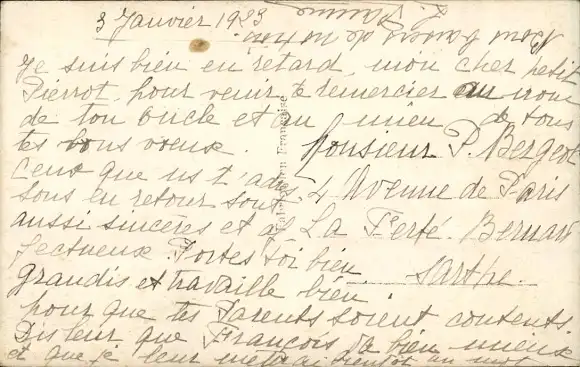 3 Janvier 1923
Je suis bien en retard, mon cher petit
Pierrot, pour venir te remercier au nom
de ton oncle et au mien de tous
tes bons voeux.
Ceux que ns t'adres
sons en retour sont
aussi sincères et af
fectueux. Portes toi bien
grandis et travaille bien
pour que tes Parents soient contents.
Dis leur que François va bien mieux
et que je leur mettrai bientôt un mot
Monsieur P. Berger
4 Avenue de Paris
La Ferté-Bernard
Sarthe.
Fabrication Française